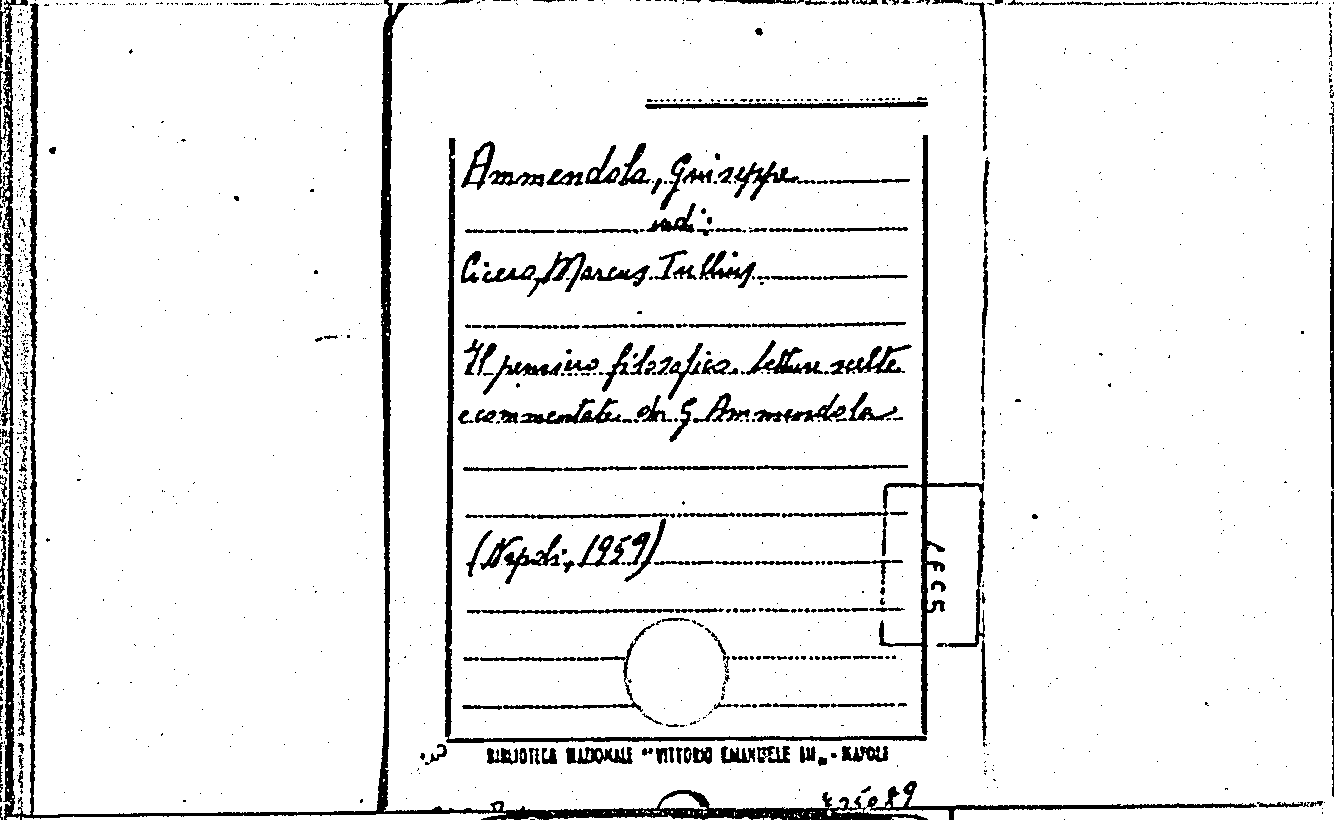 Ammendola, Giuseppe
vedi:
Cicero, Marcus Tullius
Il pensiero filosofico. Letture scelte
e commentate da G. Ammendola
(Napoli, 1959)
BIBLIOTECA NAZIONALE "VITTORIO EMANUELE III" - NAPOLI